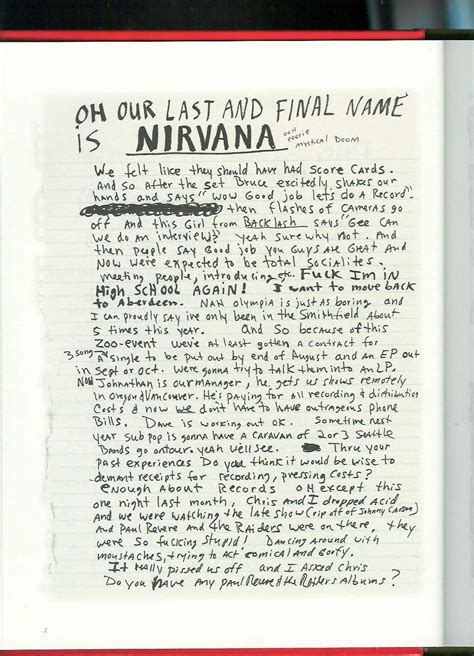 OH OUR LAST AND FINAL NAME
is NIRVANA ooh eerie mystical Doom
We felt like they should have had score cards.
And so After the set Bruce excitedly shakes our
hands and says "wow Good job lets do a Record".
then flashes of Cameras go
off And this Girl from BACKlash says "Gee Can
we do an interview? yeah sure why not. And
then people say Good job you Guys are Great And
Now were expected to be total Socialites.
meeting people, introducing etc. FUCK I'm in
High School AGAIN! I want to move back
to Aberdeen. NAH olympia is just as boring and
I can proudly say ive only been in the Smithfield About
5 times this year. And so because of this
Zoo-event weve at least gotten a contract for
3 song
A single to be put out by end of August and an EP out
in sept or oct. were gonna try to talk them into an LP.
Now Johnathan is our manager, he gets us shows remotely
in Oregon & Vancouver. He's paying for all recording & distribution
Costs & now we don't have to have outrageous phone
Bills. Dave is working out OK. Sometime next
year Sub pop is gonna have a CARAVAN of 2 or 3 Seattle
Bands go on tour. yeah we'll see. Thru your
past experiences Do you think it would be wise to
demand receipts for recording, pressing Costs?
enough About Records OH except this
one night last month, Chris and I dropped acid
And we were watching the late show (rip off of Johnny Carson)
And Paul Revere and the RAiders were on there, they
were so fucking stupid! Dancing around with
moustaches, trying to Act comical and Goofy.
It really pissed us off and I Asked Chris
Do you have Any paul Revere & the Raiders Albums?
2